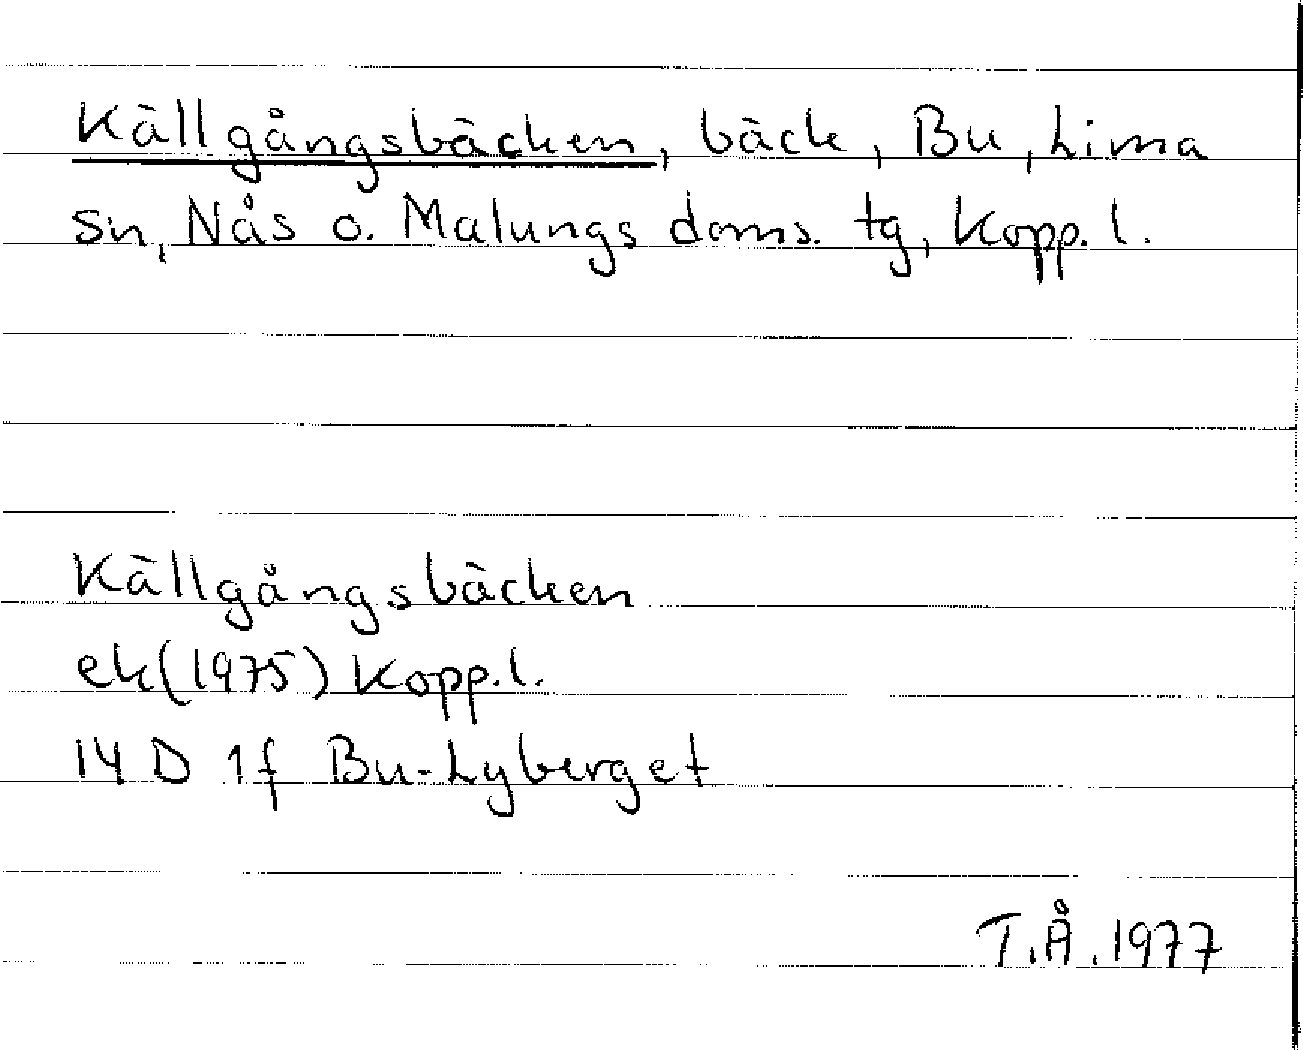 Källgångsbäcken, bäck, Bu, Lima
sn, Nås o. Malungs doms. tg, Kopp. l.
Källgångsbäcken
ek(1975) Kopp.l.
14 D 1f Bu-Lyberget
T.Å.1977